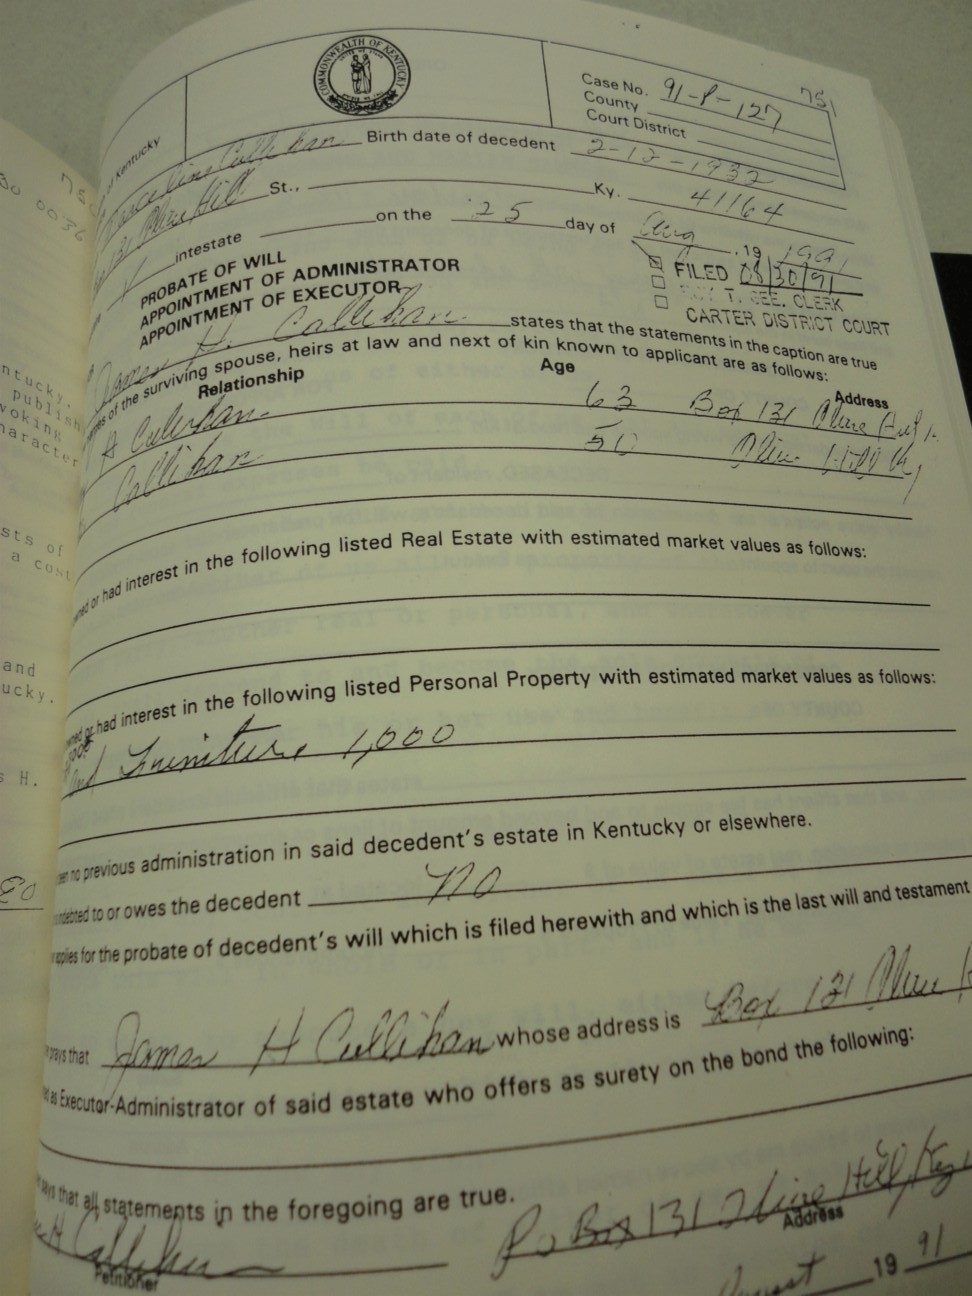 COMMONWEALTH OF KENTUCKY
751
Case No. 91-P-127
County
Court District
of Kentucky
Callihan Birth date of decedent 2-12-1932
131 Olive Hill St., Ky. 41164
X intestate on the 25 day of Aug , 19 1991
PROBATE OF WILL
APPOINTMENT OF ADMINISTRATOR
APPOINTMENT OF EXECUTOR
FILED 08/30/91
T. GEE, CLERK
CARTER DISTRICT COURT
James H. Callihan states that the statements in the caption are true
of the surviving spouse, heirs at law and next of kin known to applicant are as follows:
Relationship Age Address
H Callihan 63 Box 131 Olive Hill
Callihan 50 Olive Hill Ky
or had interest in the following listed Real Estate with estimated market values as follows:
or had interest in the following listed Personal Property with estimated market values as follows:
and Furniture 1,000
no previous administration in said decedent's estate in Kentucky or elsewhere.
indebted to or owes the decedent no
applies for the probate of decedent's will which is filed herewith and which is the last will and testament
prays that James H Callihan whose address is Box 131 Olive
as Executor-Administrator of said estate who offers as surety on the bond the following:
says that all statements in the foregoing are true.
H Callihan Po Box 131 Olive Hill, Ky
Petitioner Address
August 19 91
ntucky.
publish
voking
haracter
sts of
a cost
and
ucky.
s H.